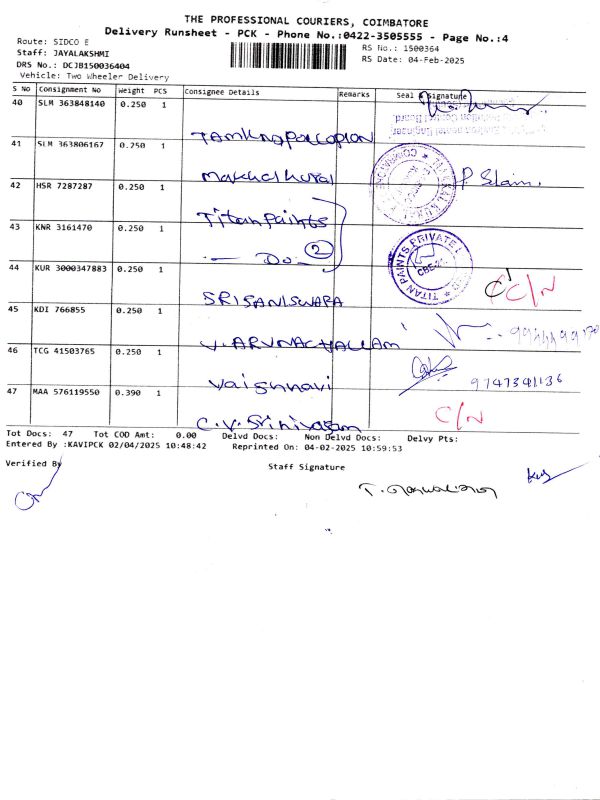 THE PROFESSIONAL COURIERS, COIMBATORE
Delivery Runsheet - PCK - Phone No.:0422-3505555 - Page No.:4
Route: SIDCO E
RS No.: 1500364
Staff: JAYALAKSHMI
RS Date: 04-Feb-2025
DRS No.: DCJB150036404
Vehicle: Two Wheeler Delivery
S No Consignment No Weight PCS Consignee Details Remarks Seal & Signature
40 SLM 363848140 0.250 1
41 SLM 363806167 0.250 1
Makkal Kural P. Slam.
42 HSR 7287287 0.250 1
Titan Paints
43 KNR 3161470 0.250 1
— Do — 2
TITAN PAINTS PRIVATE CBE-21
44 KUR 3000347883 0.250 1
C/N
SRI SANISWARA
45 KDI 766855 0.250 1
V. ARUNACHALLAM
46 TCG 41503765 0.250 1
Vaishnavi 9747341136
47 MAA 576119550 0.390 1
C/N
C.V. Srinivasan
Tot Docs: 47 Tot COD Amt: 0.00 Delvd Docs: Non Delvd Docs: Delvy Pts:
Entered By :KAVIPCK 02/04/2025 10:48:42 Reprinted On: 04-02-2025 10:59:53
Verified By
Staff Signature